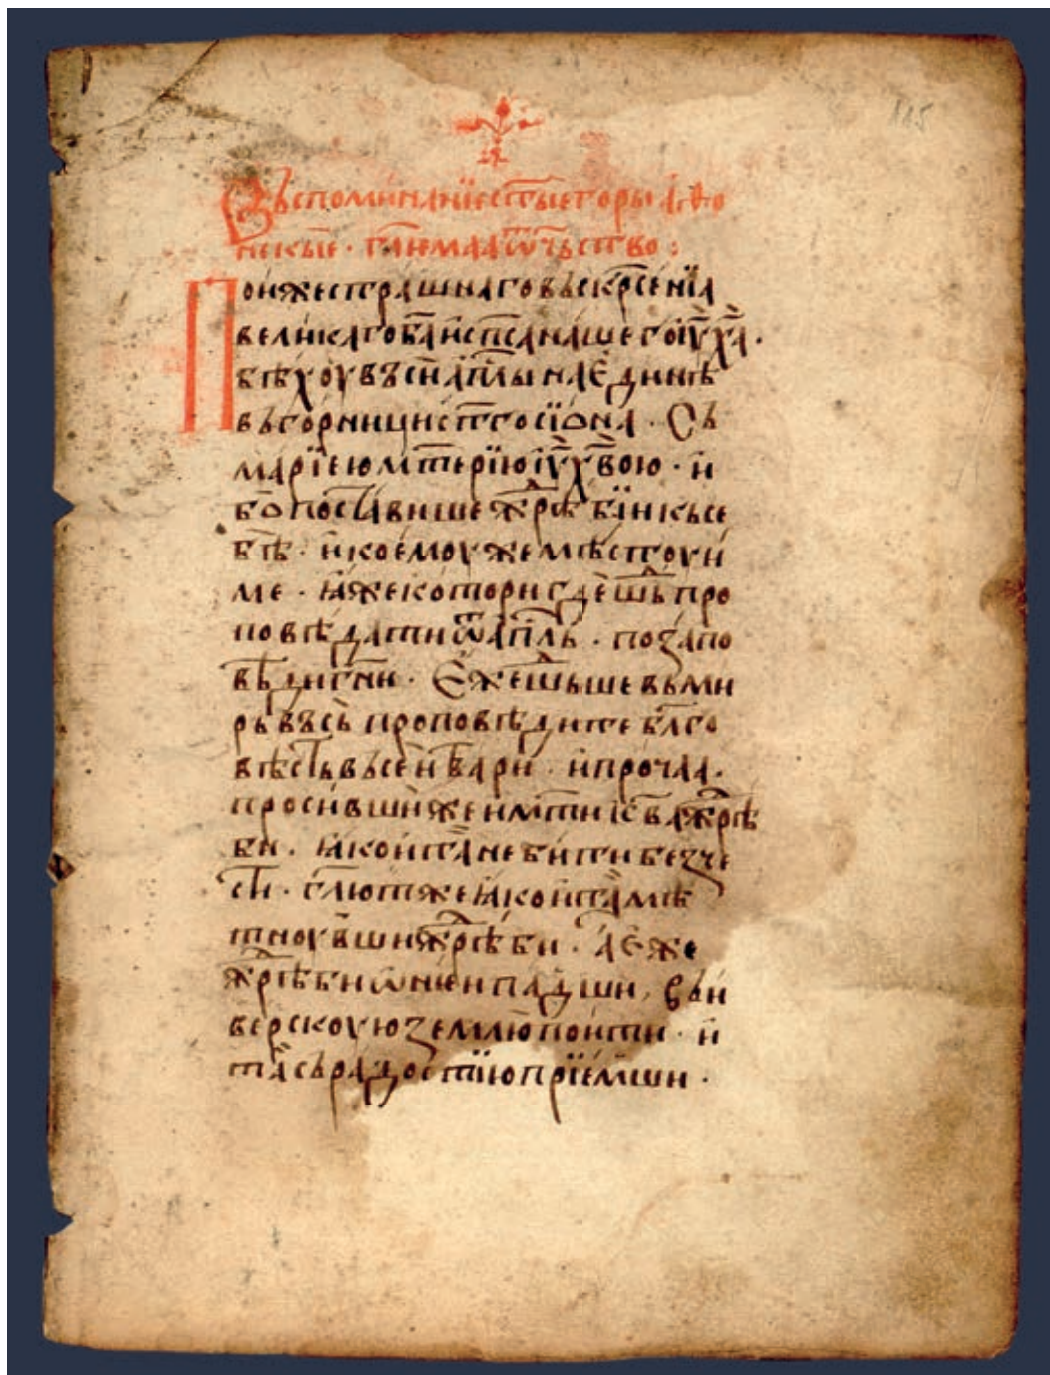 115
Въспоминанїе ст҃ые горы аѳо
нскые · гл҃ѥмаа ѡч҃ьство :
Пони же страшнаго въскрⷭ҇енїа
великаго ба҃ и сп҃са нашего іѵ҃ х҃а ·
бѣхоу въси ап҃лы на єдинѣ
въ горници ст҃го сїѡна · Съ
марїею мт҃ерїю іѵ҃ х҃вою · и
бо поставише жрѣбїи къ се
бѣ · и коемоу же мѣстоу и
ме · ꙗже котори где шⷣь про
повѣдати ѿ ап҃ль · по запо
вѣди гн҃и · Єже шⷣьше въ ми
рь въсь проповѣдите бл҃го
вѣстъ въсеи твари · и прочаа ·
просивши же и мт҃и іс҃ва жрѣ
би · ꙗко и та не бити безче
сти · гл҃ют же ꙗко и та мѣ
тноувши жрѣби · а єже
жрѣби ѡнѥи падши, въ и
верскоую землю поити · и
та съ радостїю прїемши ·